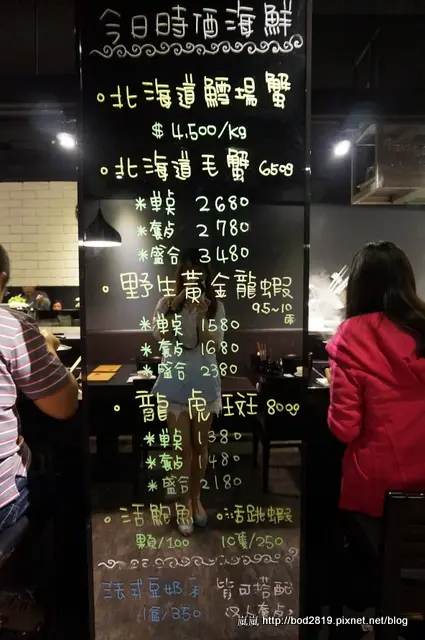 今日時価海鮮
。北海道鱈場蟹
$4,500/kg
。北海道毛蟹 650g
*単点 2680
*套点 2780
*盛合 3480
。野生黃金龍蝦
9.5~10
*単点 1580
*套点 1680
*盛合 2380
。龍虎斑 800g
*単点 1380
*套点 1480
*盛合 2180
。活鮑魚 。活跳蝦
顆/100 10隻/250
法式豆奶 皆可搭配
1個/350 双人套点。
嵐嵐 http://bod2819.pixnet.net/blog